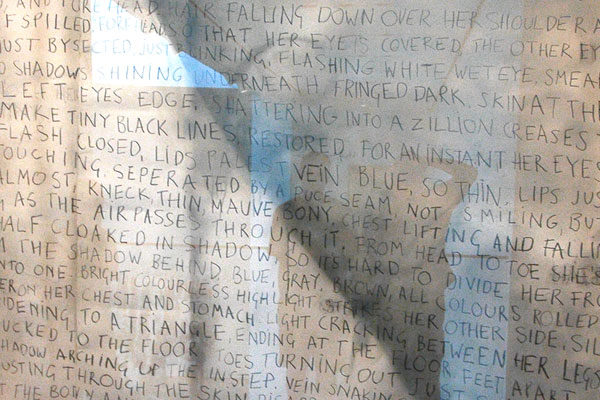 AND PURE HEAD HAIR FALLING DOWN OVER HER SHOULDER A
F SPILLED FOREHEAD SO THAT HER EYE IS COVERED, THE OTHER EY
JUST BYSECTED, JUST INKING, FLASHING WHITE, WET EYE. SMEA
D SHADOWS SHINING UNDERNEATH, FRINGED DARK. SKIN AT TH
LEFT EYES EDGE, SHATTERING INTO A ZILLION CREASES T
MAKE TINY BLACK LINES, RESTORED. FOR AN INSTANT HER EYES
FLASH CLOSED, LIDS PALE VEIN BLUE, SO THIN. LIPS JUS
TOUCHING. SEPERATED BY A PUCE SEAM. NOT SMILING, BUT
ALMOST. KNECK, THIN MAUVE BONY, CHEST LIFTING AND FALLIN
AS THE AIR PASSES THROUGH IT. FROM HEAD TO TOE SHE'S
HALF CLOAKED IN SHADOW, SO ITS HARD TO DIVIDE HER FRO
THE SHADOW BEHIND BLUE, GRAY, BROWN, ALL COLOURS ROLLED
INTO ONE. BRIGHT COLOURLESS HIGHLIGHT STRIKES HER OTHER SIDE, SIL
ER ON HER CHEST AND STOMACH LIGHT CRACKING BETWEEN HER LEGS
IDENING, TO A TRIANGLE, ENDING AT THE FLOOR FEET APART
UCKED TO THE FLOOR TOES TURNING OUT JUST
SHADOW ARCHING UP THE INSTEP. VEIN SNAKIN
USTING THROUGH THE SKIN
T THE BONY AN